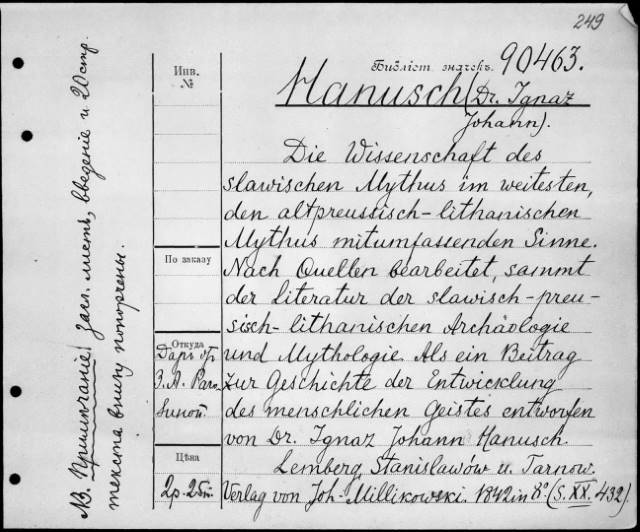 249
Библіот. значекъ. 90463.
Инв.
№
Hanusch (Dr. Ignaz
Johann).
Die Wissenschaft des
slawischen Mythus im weitesten,
den altpreussisch-lithanischen
Mythus mitumfassenden Sinne.
Nach Quellen bearbeitet, sammt
der Literatur der slawisch-preu-
sisch-lithanischen Archäologie
und Mythologie. Als ein Beitrag
zur Geschichte der Entwicklung
des menschlichen Geistes entworfen
von Dr. Ignaz Johann Hanusch.
Lemberg, Stanislawów u. Tarnow.
Verlag von Joh. Millikowski. 1842 in 8° (S. XX. 432).
По заказу
Откуда
Даръ от
З. А. Раго-
зиной
Цѣна
2р. 25к.
NB. Примѣчаніе! загл. листъ, введеніе и 20 стр.
текста внизу попорчены.